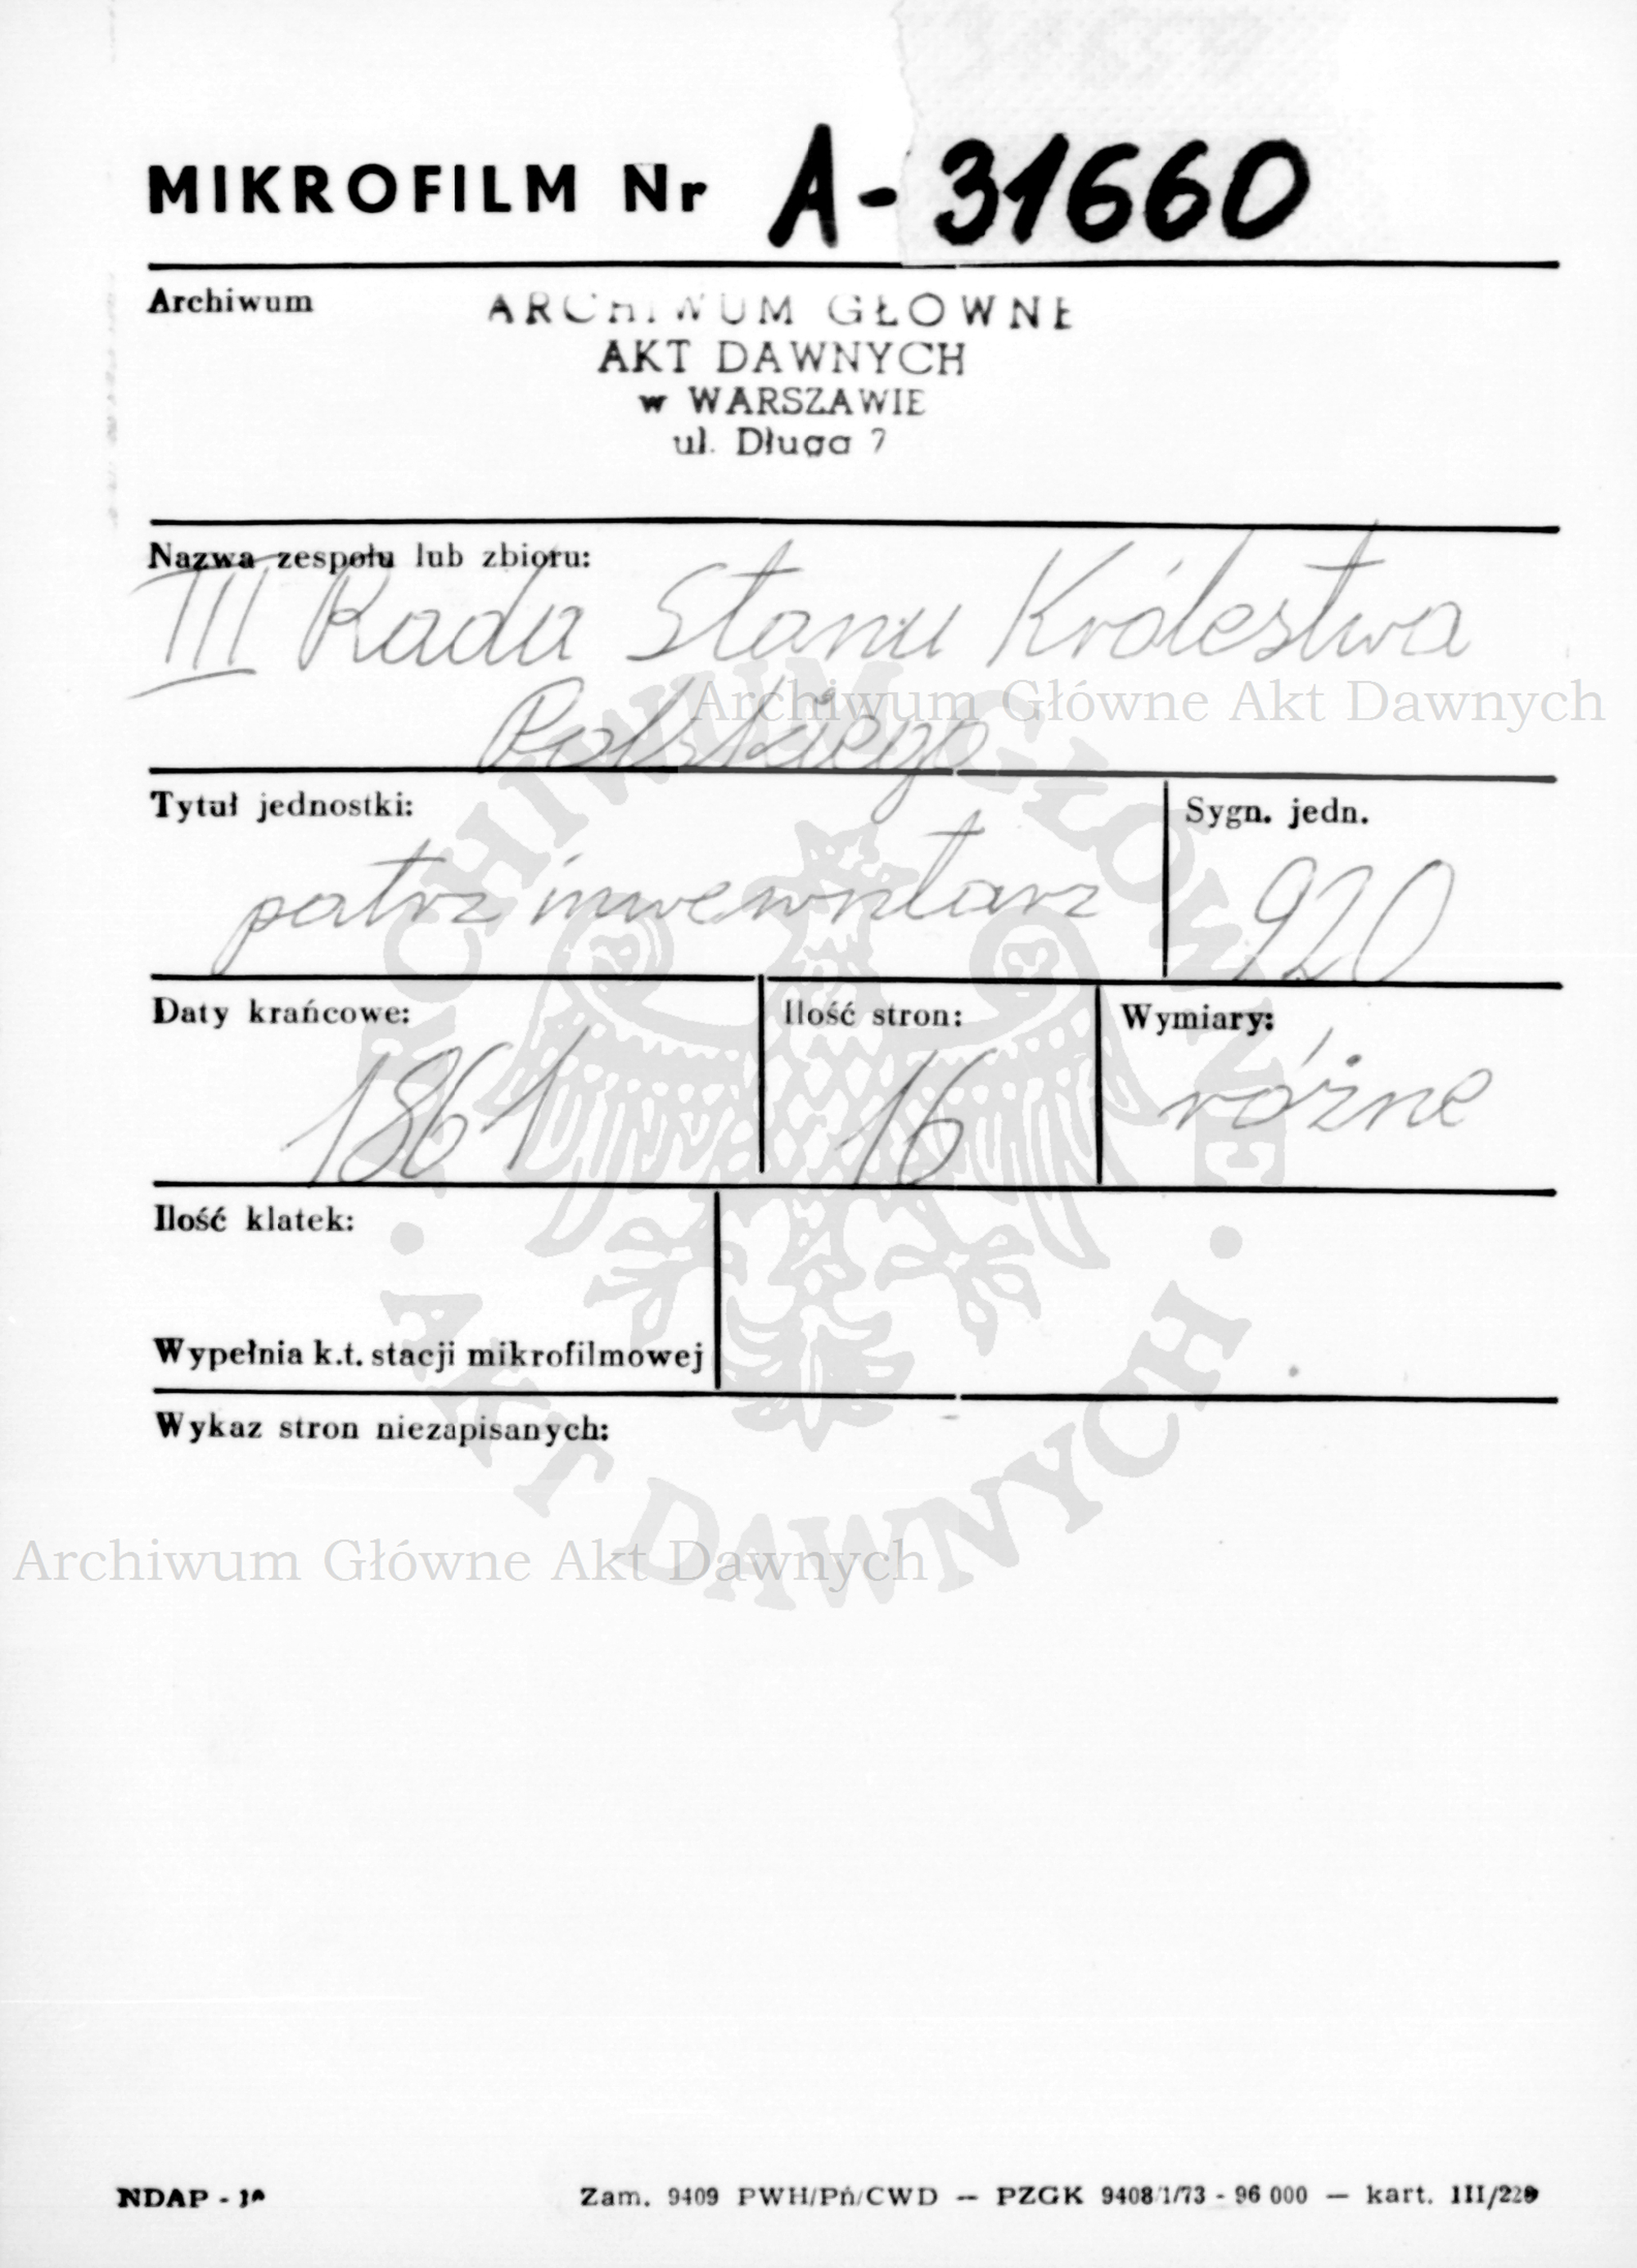 MIKROFILM Nr A-31660
Archiwum
ARCHIWUM GŁOWNE
AKT DAWNYCH
w WARSZAWIE
ul. Długa 7
Nazwa zespołu lub zbioru:
III Rada Stanu Królestwa
Polskiego
Archiwum Główne Akt Dawnych
Tytuł jednostki:
patrz inwewntarz
Sygn. jedn.
920
Daty krańcowe:
1861
Ilość stron:
16
Wymiary:
różne
Ilość klatek:
Wypełnia k.t. stacji mikrofilmowej
Wykaz stron niezapisanych:
ARCHIWUM GŁÓWNE
• AKT DAWNYCH •
Archiwum Główne Akt Dawnych
NDAP -
Zam. 9409 PWH/Pń/CWD — PZGK 9408/1/73 - 96 000 — kart. III/229